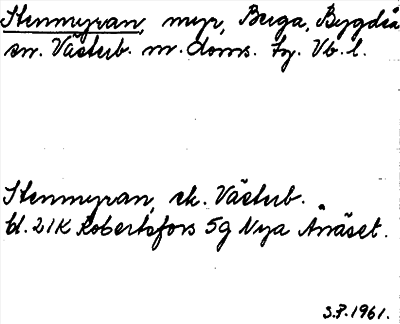 Stenmyran, myr, Berga, Bygdeå
sn. Västerb. n. doms. fg. Vb. l.
Stenmyran, ek. Västerb.
bl. 21K Robertsfors 5g Nya Ånäset.
S.P. 1961.